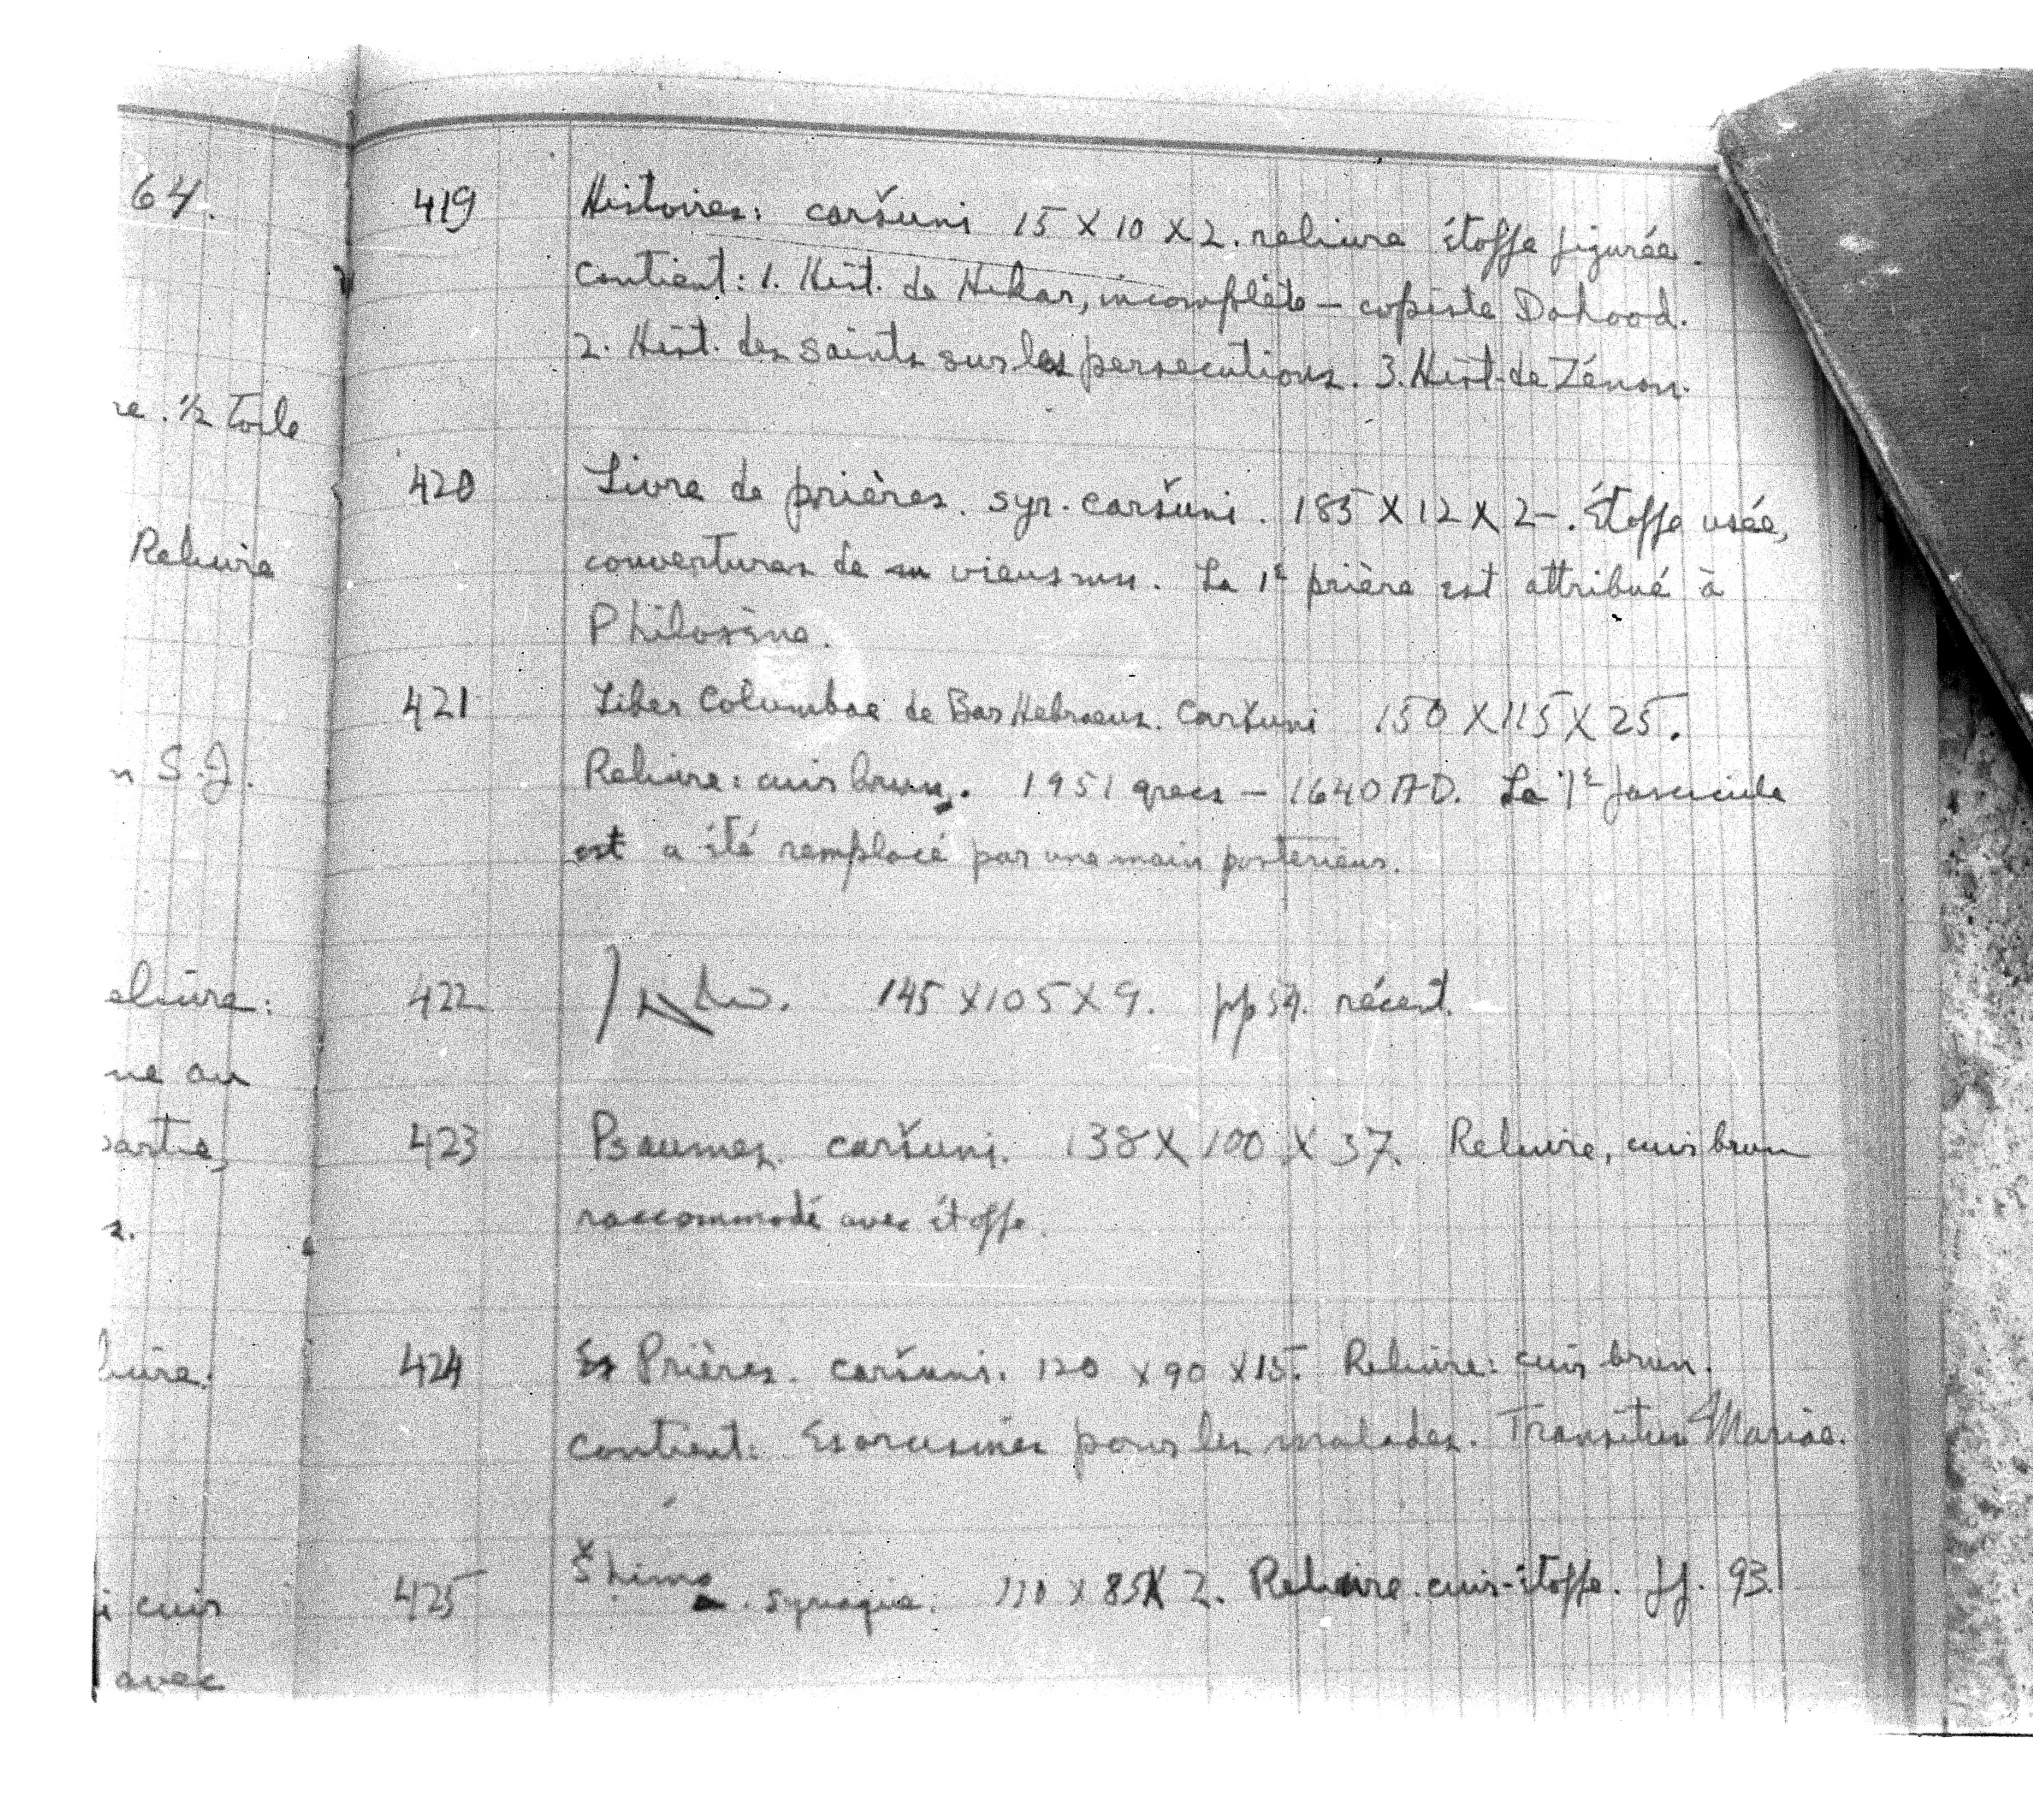 64.
re. 1/2 toile
Reluire
n S.J.
eliure:
ne au
partie,
s.
liure.
i cuir
avec
419 Histoires: caršuni 15 X 10 X 2. reliure étoffe figurée.
contient: 1. Hist. de Hikar, incomplète – copiste Dahood.
2. Hist. des saints sur les persecutions. 3. Hist. de Zénon.
420 Livre de prières. syr. caršuni. 185 X 12 X 2-. Étoffe usée,
couvertures de vieus mss. La 1e prière est attribué à
Philosène.
421 Liber Columbae de Bar Hebraeus. Caršuni 150 X 115 X 25.
Reliure: cuir brun. 1951 grecs – 1640 AD. Le 1e fascicule
est a été remplacé par une main posterieur.
422 145 X 105 X 9. pp 54. récent.
423 Psaumes. caršuni. 138 X 100 X 37. Reluire, cuir brun
raccommodé avec étoffe.
424 Prières. caršuni. 120 X 90 X 15. Reluire: cuir brun.
contient: Esorcismes pour les malades. Transitus Mariae.
425 Šhima. syriaque. 110 X 85 X 2. Reliure. cuir-étoffe. ff. 93.